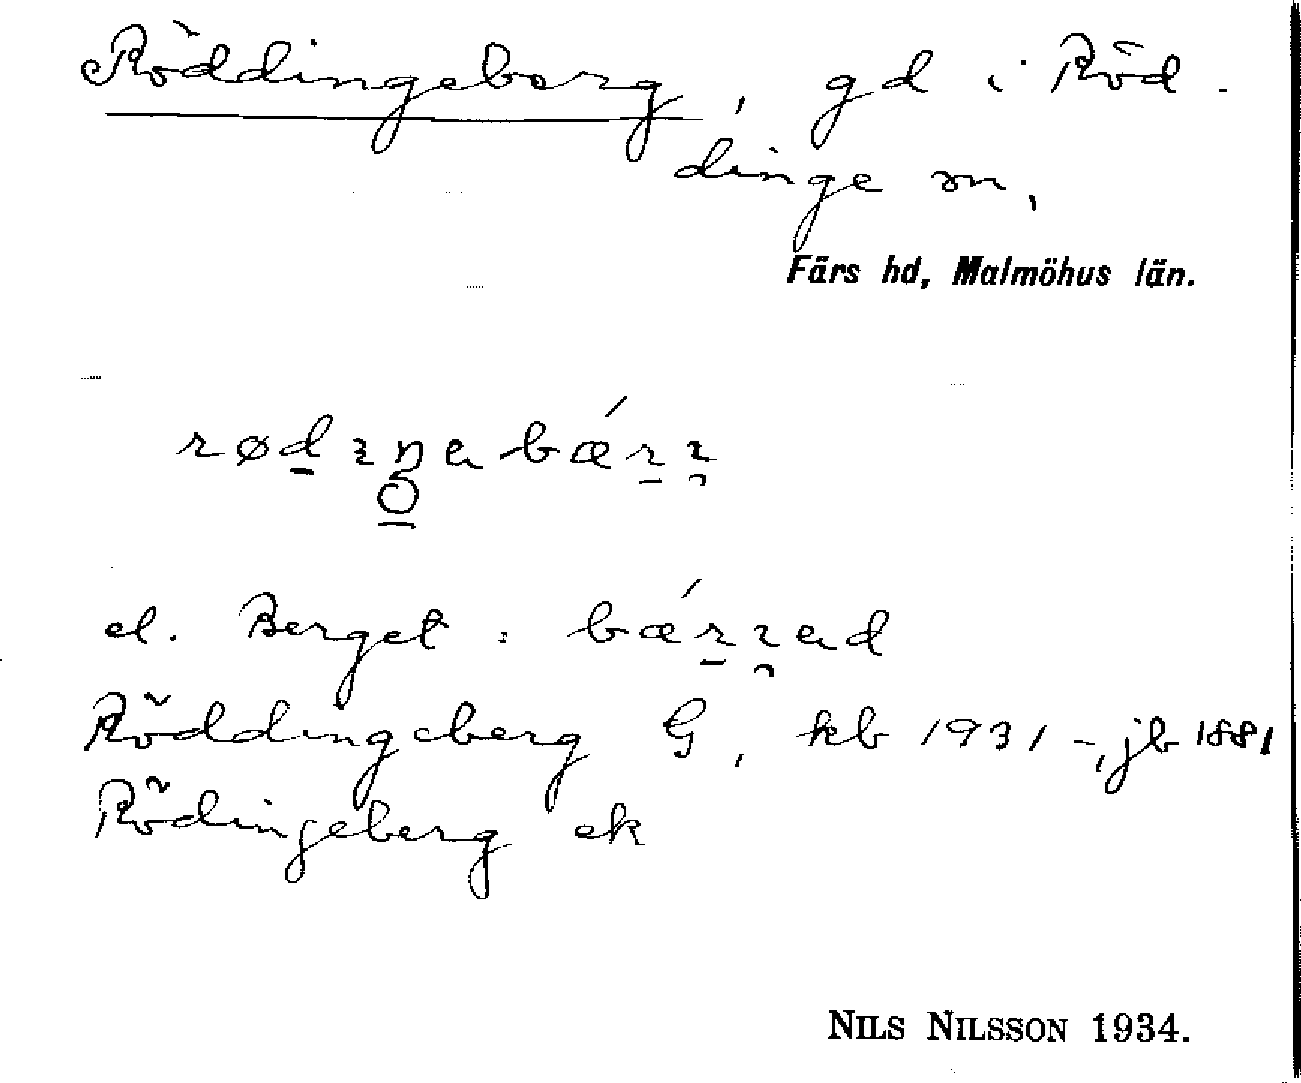 Röddingeberg, gd i Röd-
dinge sn,
Färs hd, Malmöhus län.
el. Berget:
Röddingeberg G, kb 1931 -, jb 1881
Rödingeberg ek
NILS NILSSON 1934.